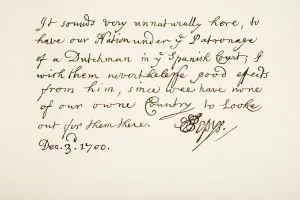 It sounds very unnaturally here, to
have our Nation under ye Patronage
of a Dutchman in ye Spanish Court; I
wish them neverthelesse good efects
from him, since wee have none
of our owne Country to Looke
out for them there. SPepys.
Dec. 3d. 1700.